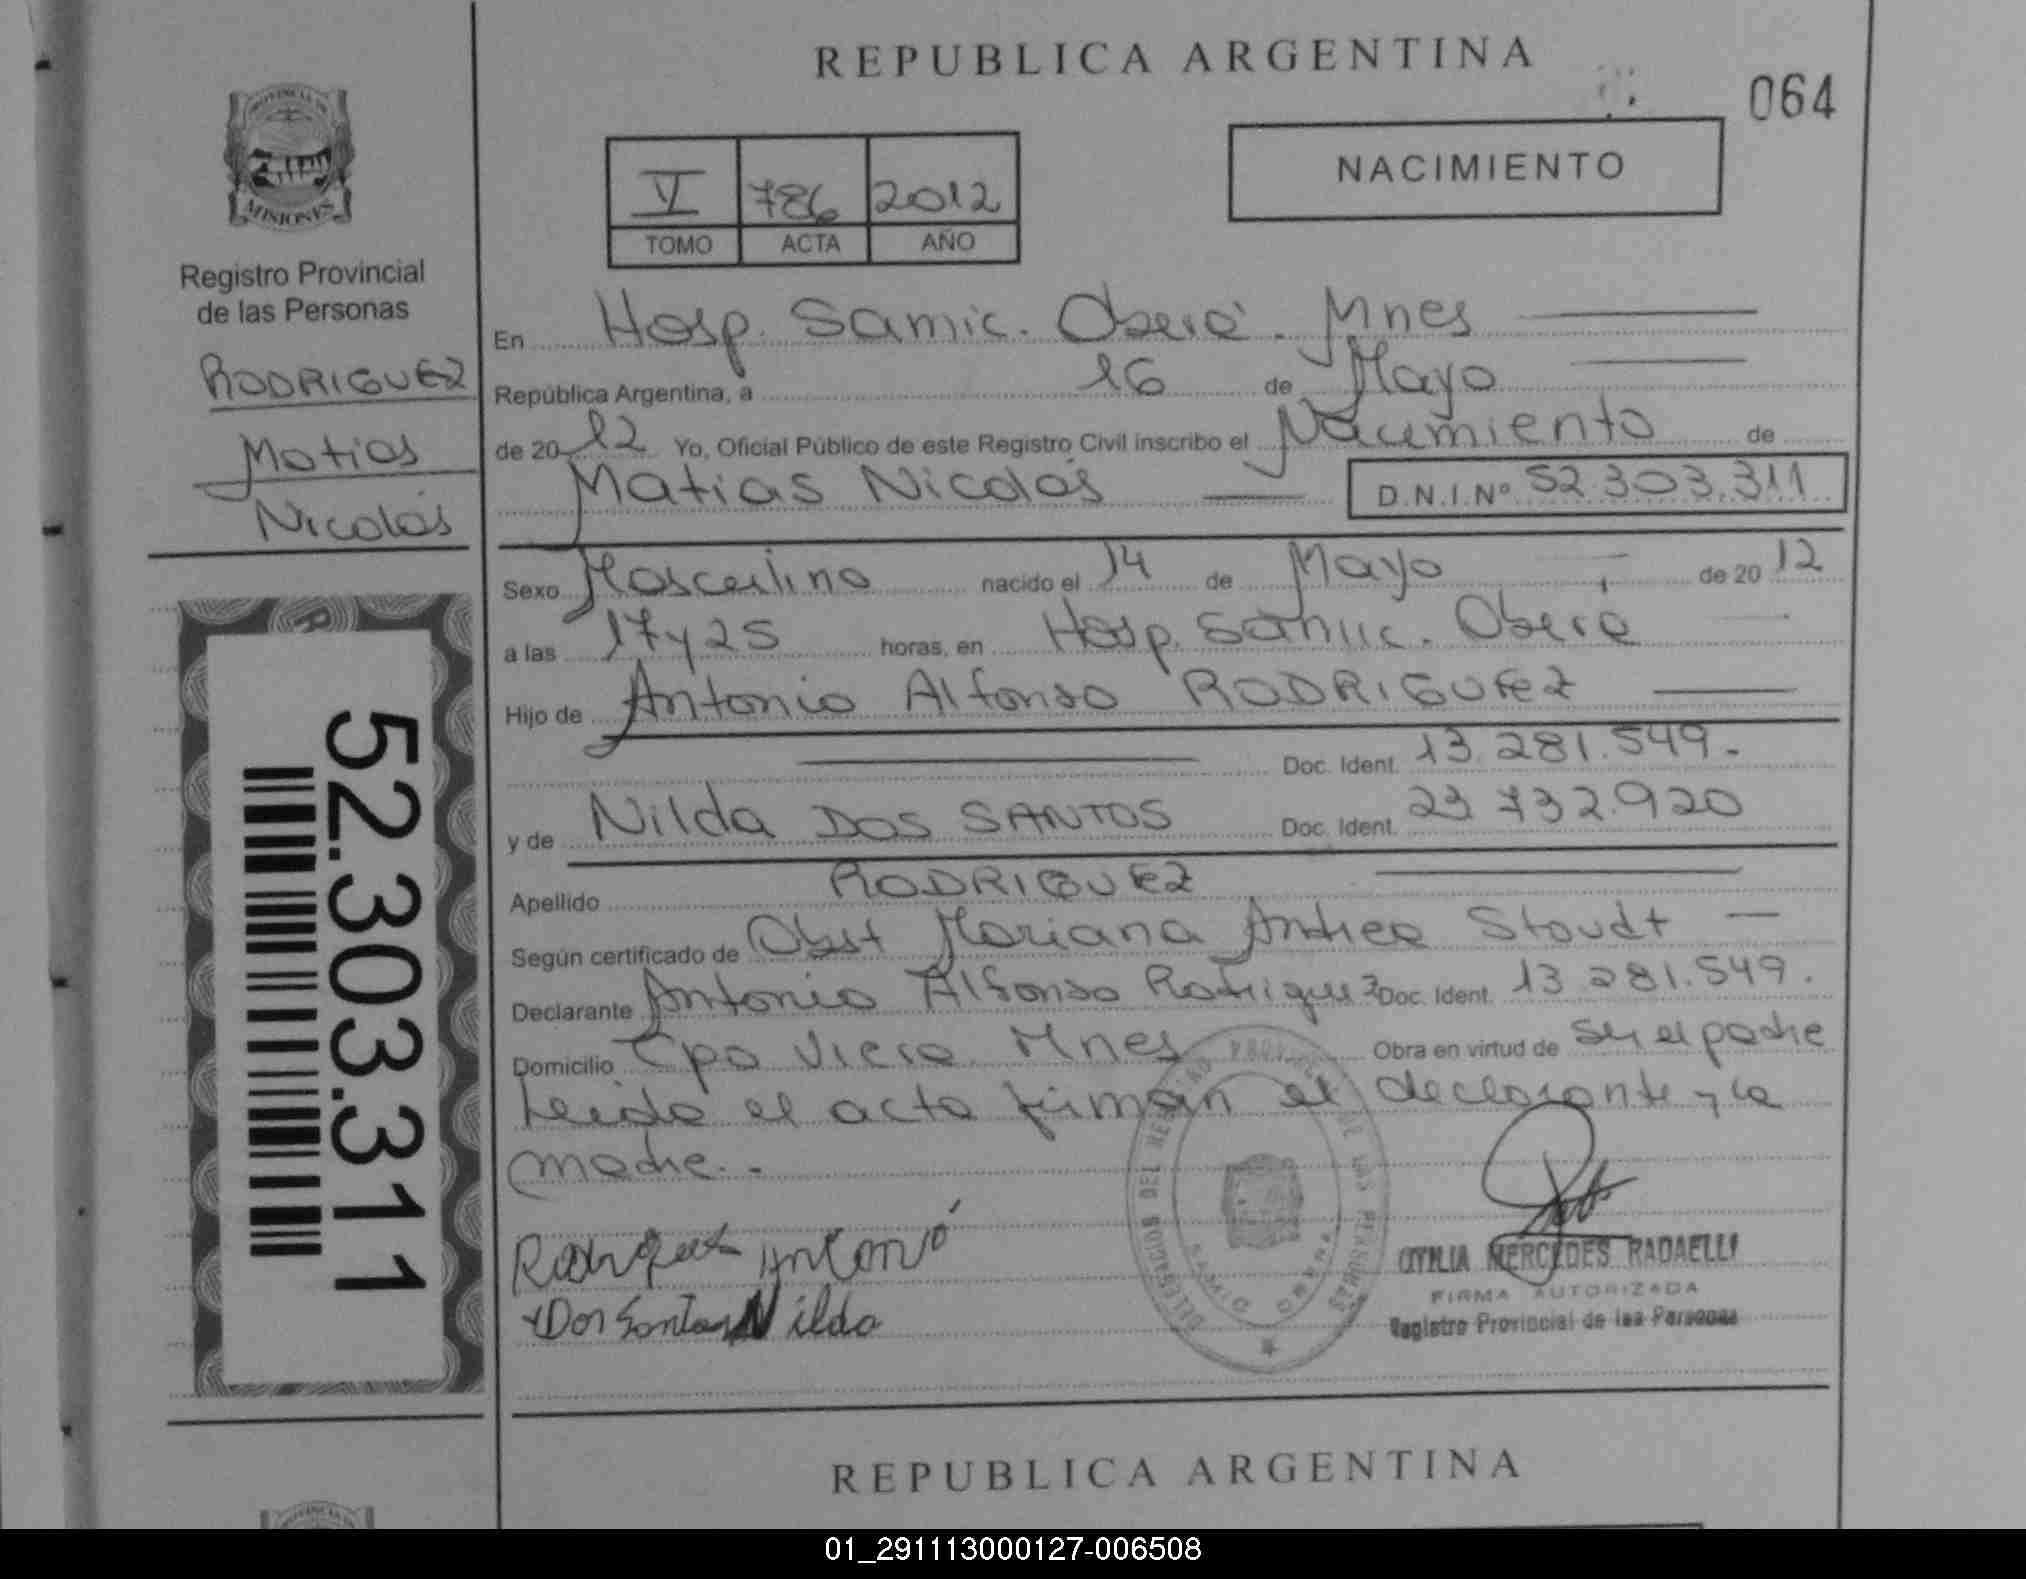 REPUBLICA ARGENTINA
064
PROVINCIA DE
MISIONES
Registro Provincial
de las Personas
RODRIGUEZ
Matías
Nicolás
52.303.311
V 786 2012
TOMO ACTA AÑO
NACIMIENTO
En Hosp. Samic. Oberá. Mnes
República Argentina, a 16 de Mayo
de 2012 Yo, Oficial Público de este Registro Civil inscribo el Nacimiento de
Matias Nicolás D.N.I.Nº 52.303.311
Sexo Masculino nacido el 14 de Mayo de 2012
a las 17 y 25 horas, en Hosp. Samic. Oberá
Hijo de Antonio Alfonso RODRIGUEZ
Doc. Ident. 13.281.549.-
y de Nilda DOS SANTOS Doc. Ident. 23.732.920
Apellido RODRIGUEZ
Según certificado de Obst Mariana Andrea Stoudt
Declarante Antonio Alfonso Rodriguez Doc. Ident. 13.281.549.
Domicilio Cpo Viera Mnes Obra en virtud de ser el padre
Leida el acta firman el declarante y la
madre.-
Rodriguez Antonio
Dos Santos Nilda
OTILIA MERCEDES RADAELLI
FIRMA AUTORIZADA
Registro Provincial de las Personas
REPUBLICA ARGENTINA
01_291113000127-006508